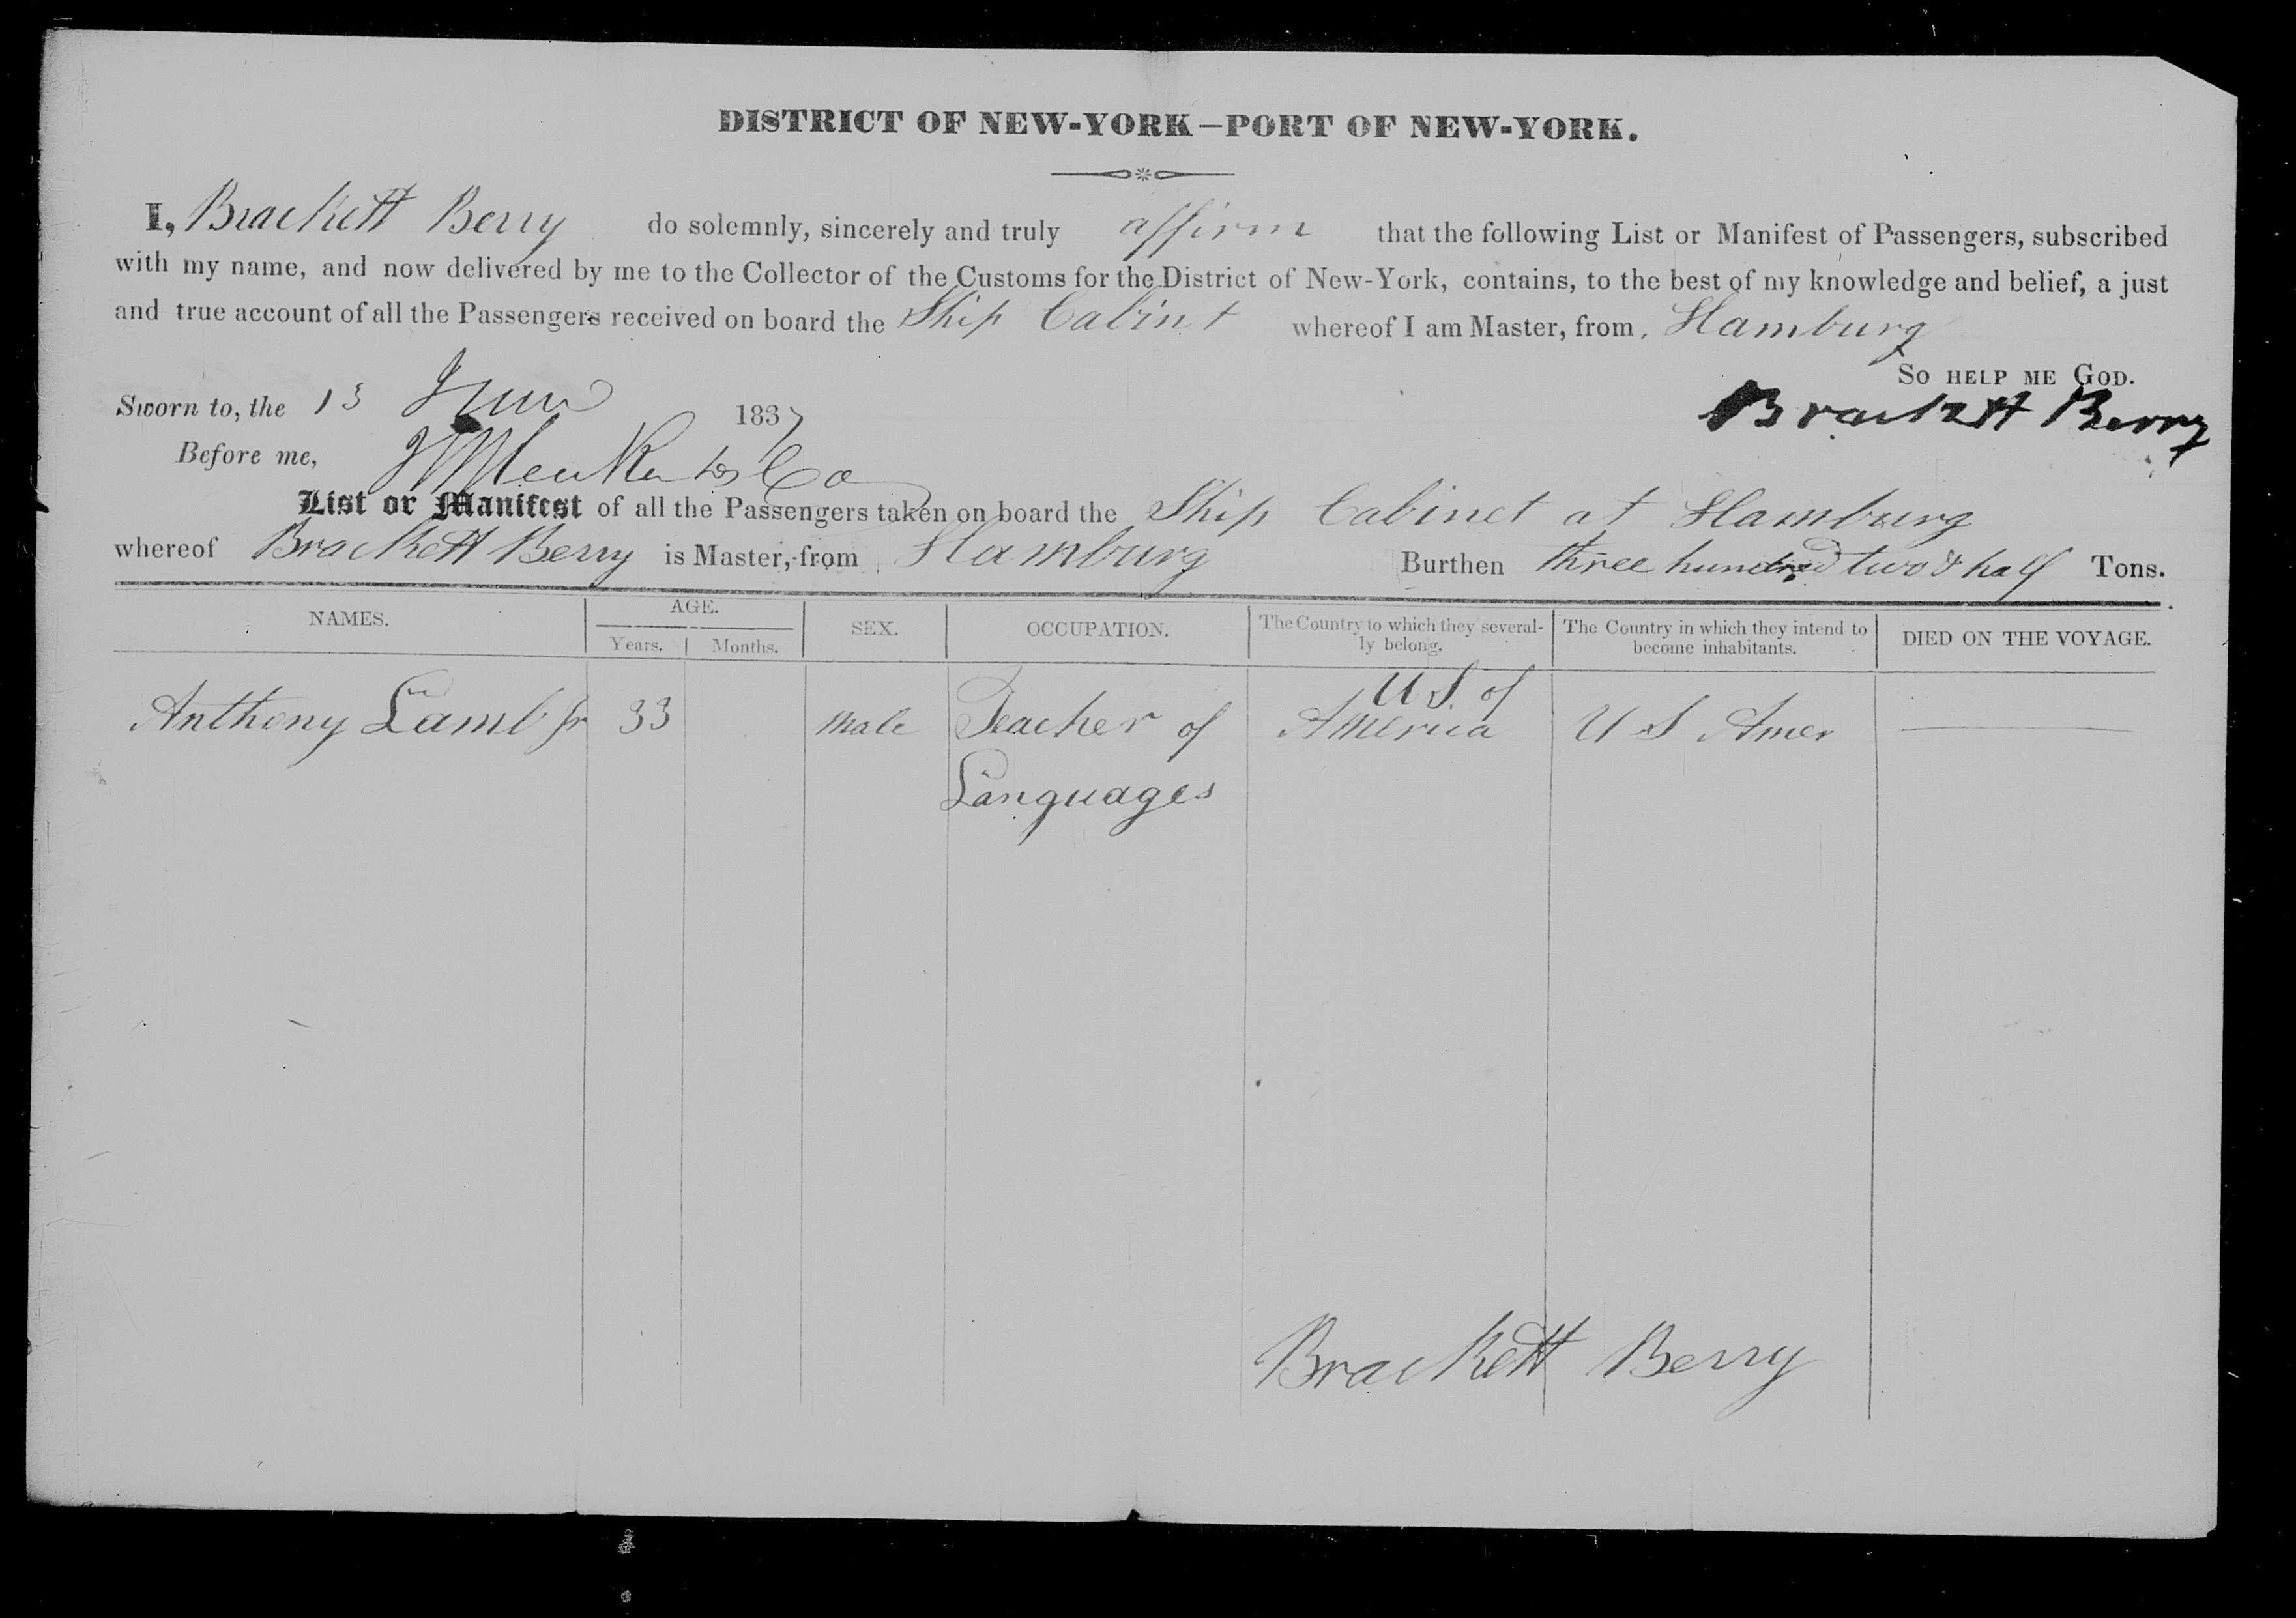 DISTRICT OF NEW-YORK—PORT OF NEW-YORK.
I, Brackett Berry do solemnly, sincerely and truly affirm that the following List or Manifest of Passengers, subscribed
with my name, and now delivered by me to the Collector of the Customs for the District of New-York, contains, to the best of my knowledge and belief, a just
and true account of all the Passengers received on board the Ship Cabinet whereof I am Master, from Hamburg
So help me God.
Sworn to, the 13 June 1837 Brackett Berry
Before me,
List or Manifest of all the Passengers taken on board the Ship Cabinet at Hamburg
whereof Brackett Berry is Master, from Hamburg Burthen three hundred two & half Tons.
NAMES. AGE. SEX. OCCUPATION. The Country to which they several- The Country in which they intend to DIED ON THE VOYAGE.
Years. Months. ly belong. become inhabitants.
U S. of
Anthony Lamb Jr 33 male Teacher of America U S Amer
Languages
Brackett Berry